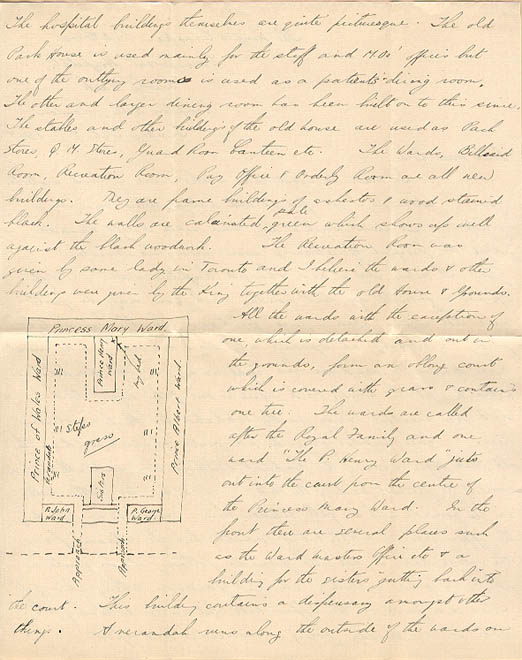 The hospital buildings themselves are quite picturesque. The old
Park House is used mainly for the staff and M.Os' offices but
one of the outlying rooms is used as a patients' dining room.
The other and larger dining room has been built on to this since.
The stables and other buildings of the old house are used as Pack
Stores, Q M. Stores, Guard Room Canteen etc. The Wards, Billiard
Room, Recreation Room, Pay Office & Orderly Room are all new
buildings. They are frame buildings of asbestos & wood stained
black. The walls are calcimated, pale green which shows up well
against the black woodwork. The Recreation Room was
given by some lady in Toronto and I believe the wards & other
buildings were given by the King together with the old House & Grounds.
All the wards with the exception of
one, which is detached and out in
the grounds, form an oblong court
which is covered with grass & contains
one tree. The wards are called
after the Royal Family and one
ward "The P. Henry Ward" juts
out into the court from the centre of
the Princess Mary Ward. In the
front there are several places such
as the Ward masters Office etc & a
building for the sisters jutting back into
the court. This building contains a dispensary amongst other
things. A verandah runs along the outside of the wards on
Princess Mary Ward.
Prince Henry
Ward
my bed
Prince of Wales Ward
Verandah
Steps
grass
Prince Albert Ward.
Sisters
P. John
Ward
P. George
Ward.
Approach
Approach